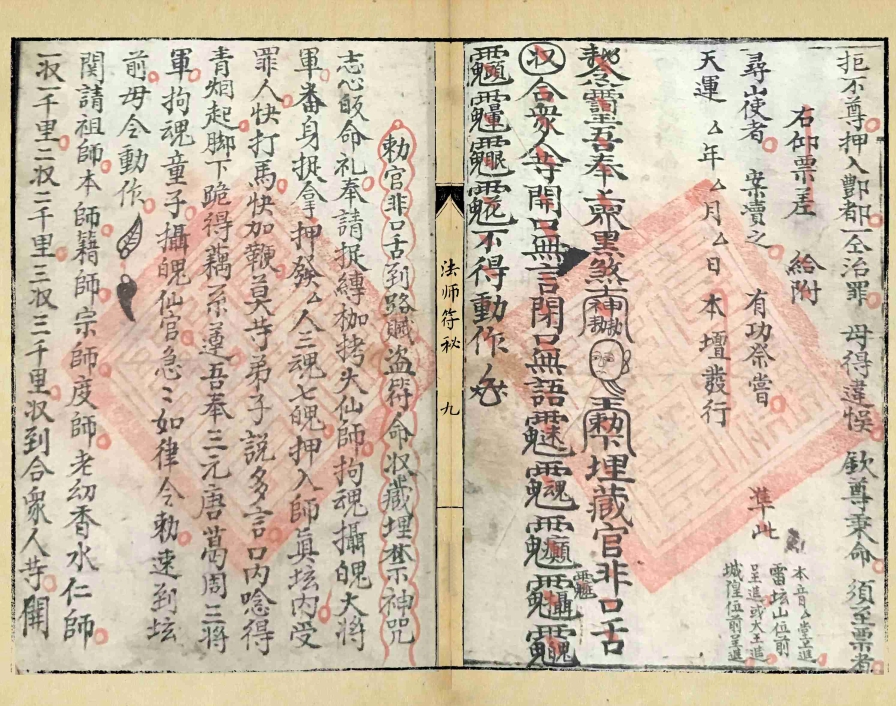 拒不尊押入酆都一仝治罪 毋得違悮 欽尊秉命 須至票者
右仰票差 給附
尋山使者 案瀆之 有功祭嘗 準此
本音公堂上進
雷坛山位前
呈進或大王進
城隍位前呈進
天運 厶年厶月厶日 本壇發行
吾奉 黑煞神 勅下埋藏官非口舌
收合衆人等開口無言閉口無語
不得動作
法师符秘 九
勅官非口舌到路賊盗符命收藏埋禁神咒
志心皈命礼奉請捉縛枷拷大仙師拘魂攝魄大將
軍番身捉拿押發厶人三魂七魄押入師真坛内受
罪人快打馬快加鞭莫等弟子說多言口内唸得
青烟起脚下跪得藕糸蓮吾奉三元唐葛周三將
軍拘魂童子攝魄仙官急〻如律令勅速到坛
前毋令動作
関請祖師本師籍師宗師度師老幼香水仁師
一收一千里二收二千里三收三千里收到合衆人等開